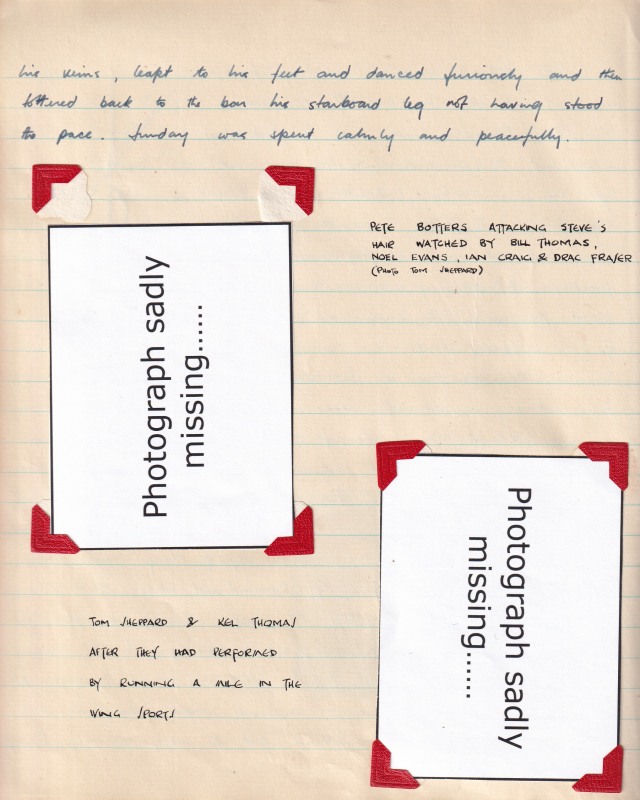 his veins, leapt to his feet and danced furiously and then
tottered back to the bar his starboard leg not having stood
the pace. Sunday was spent calmly and peacefully.
PETE BOTTERS ATTACKING STEVE'S
HAIR WATCHED BY BILL THOMAS,
NOEL EVANS, IAN CRAIG & DRAC FRASER
(PHOTO TOM SHEPPARD)
Photograph sadly
missing......
Photograph sadly
missing......
TOM SHEPPARD & KEL THOMAS
AFTER THEY HAD PERFORMED
BY RUNNING A MILE IN THE
WING SPORTS